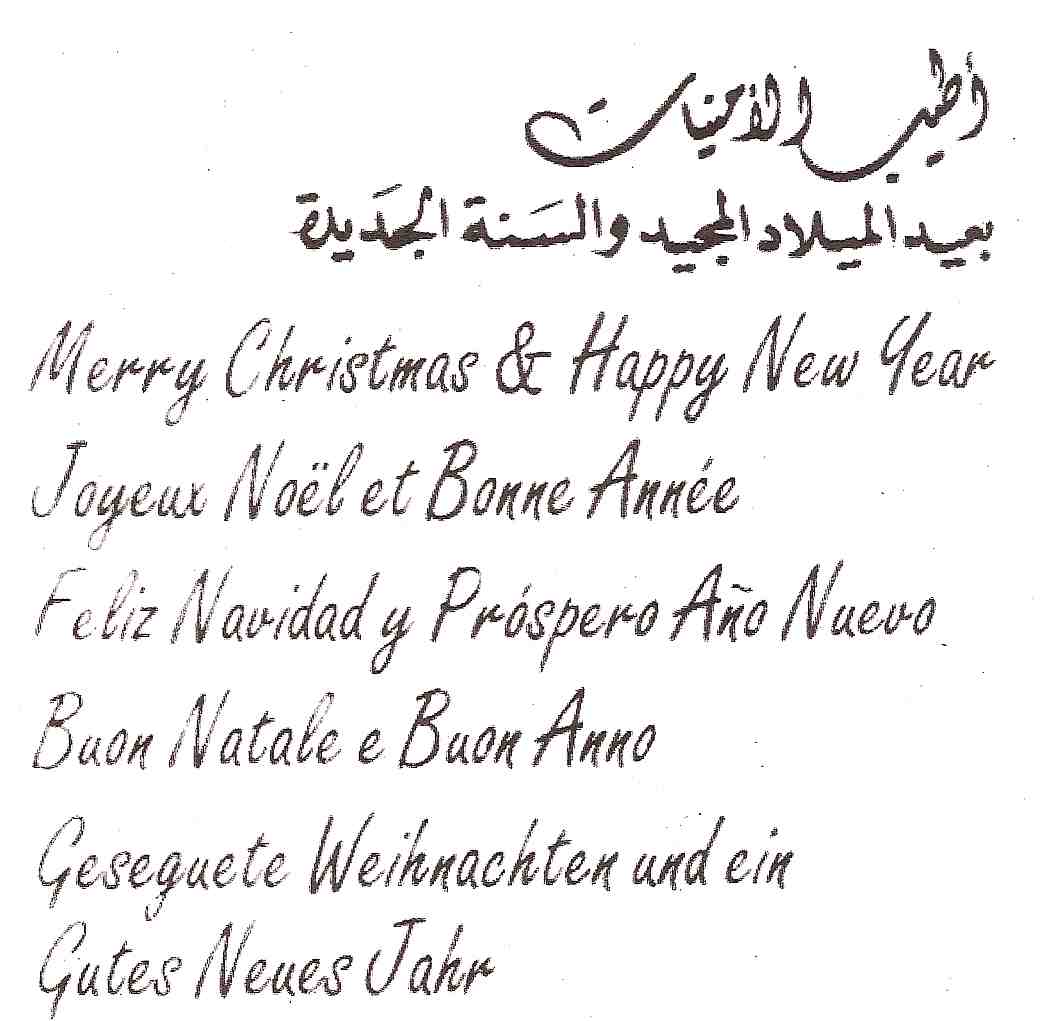 أطيب الأمنيات
بعيد الميلاد المجيد والسَنة الجدَيدة
Merry Christmas & Happy New Year
Joyeux Noël et Bonne Année
Feliz Navidad y Próspero Año Nuevo
Buon Natale e Buon Anno
Geseguete Weihnachten und ein
Gutes Neues Jahr